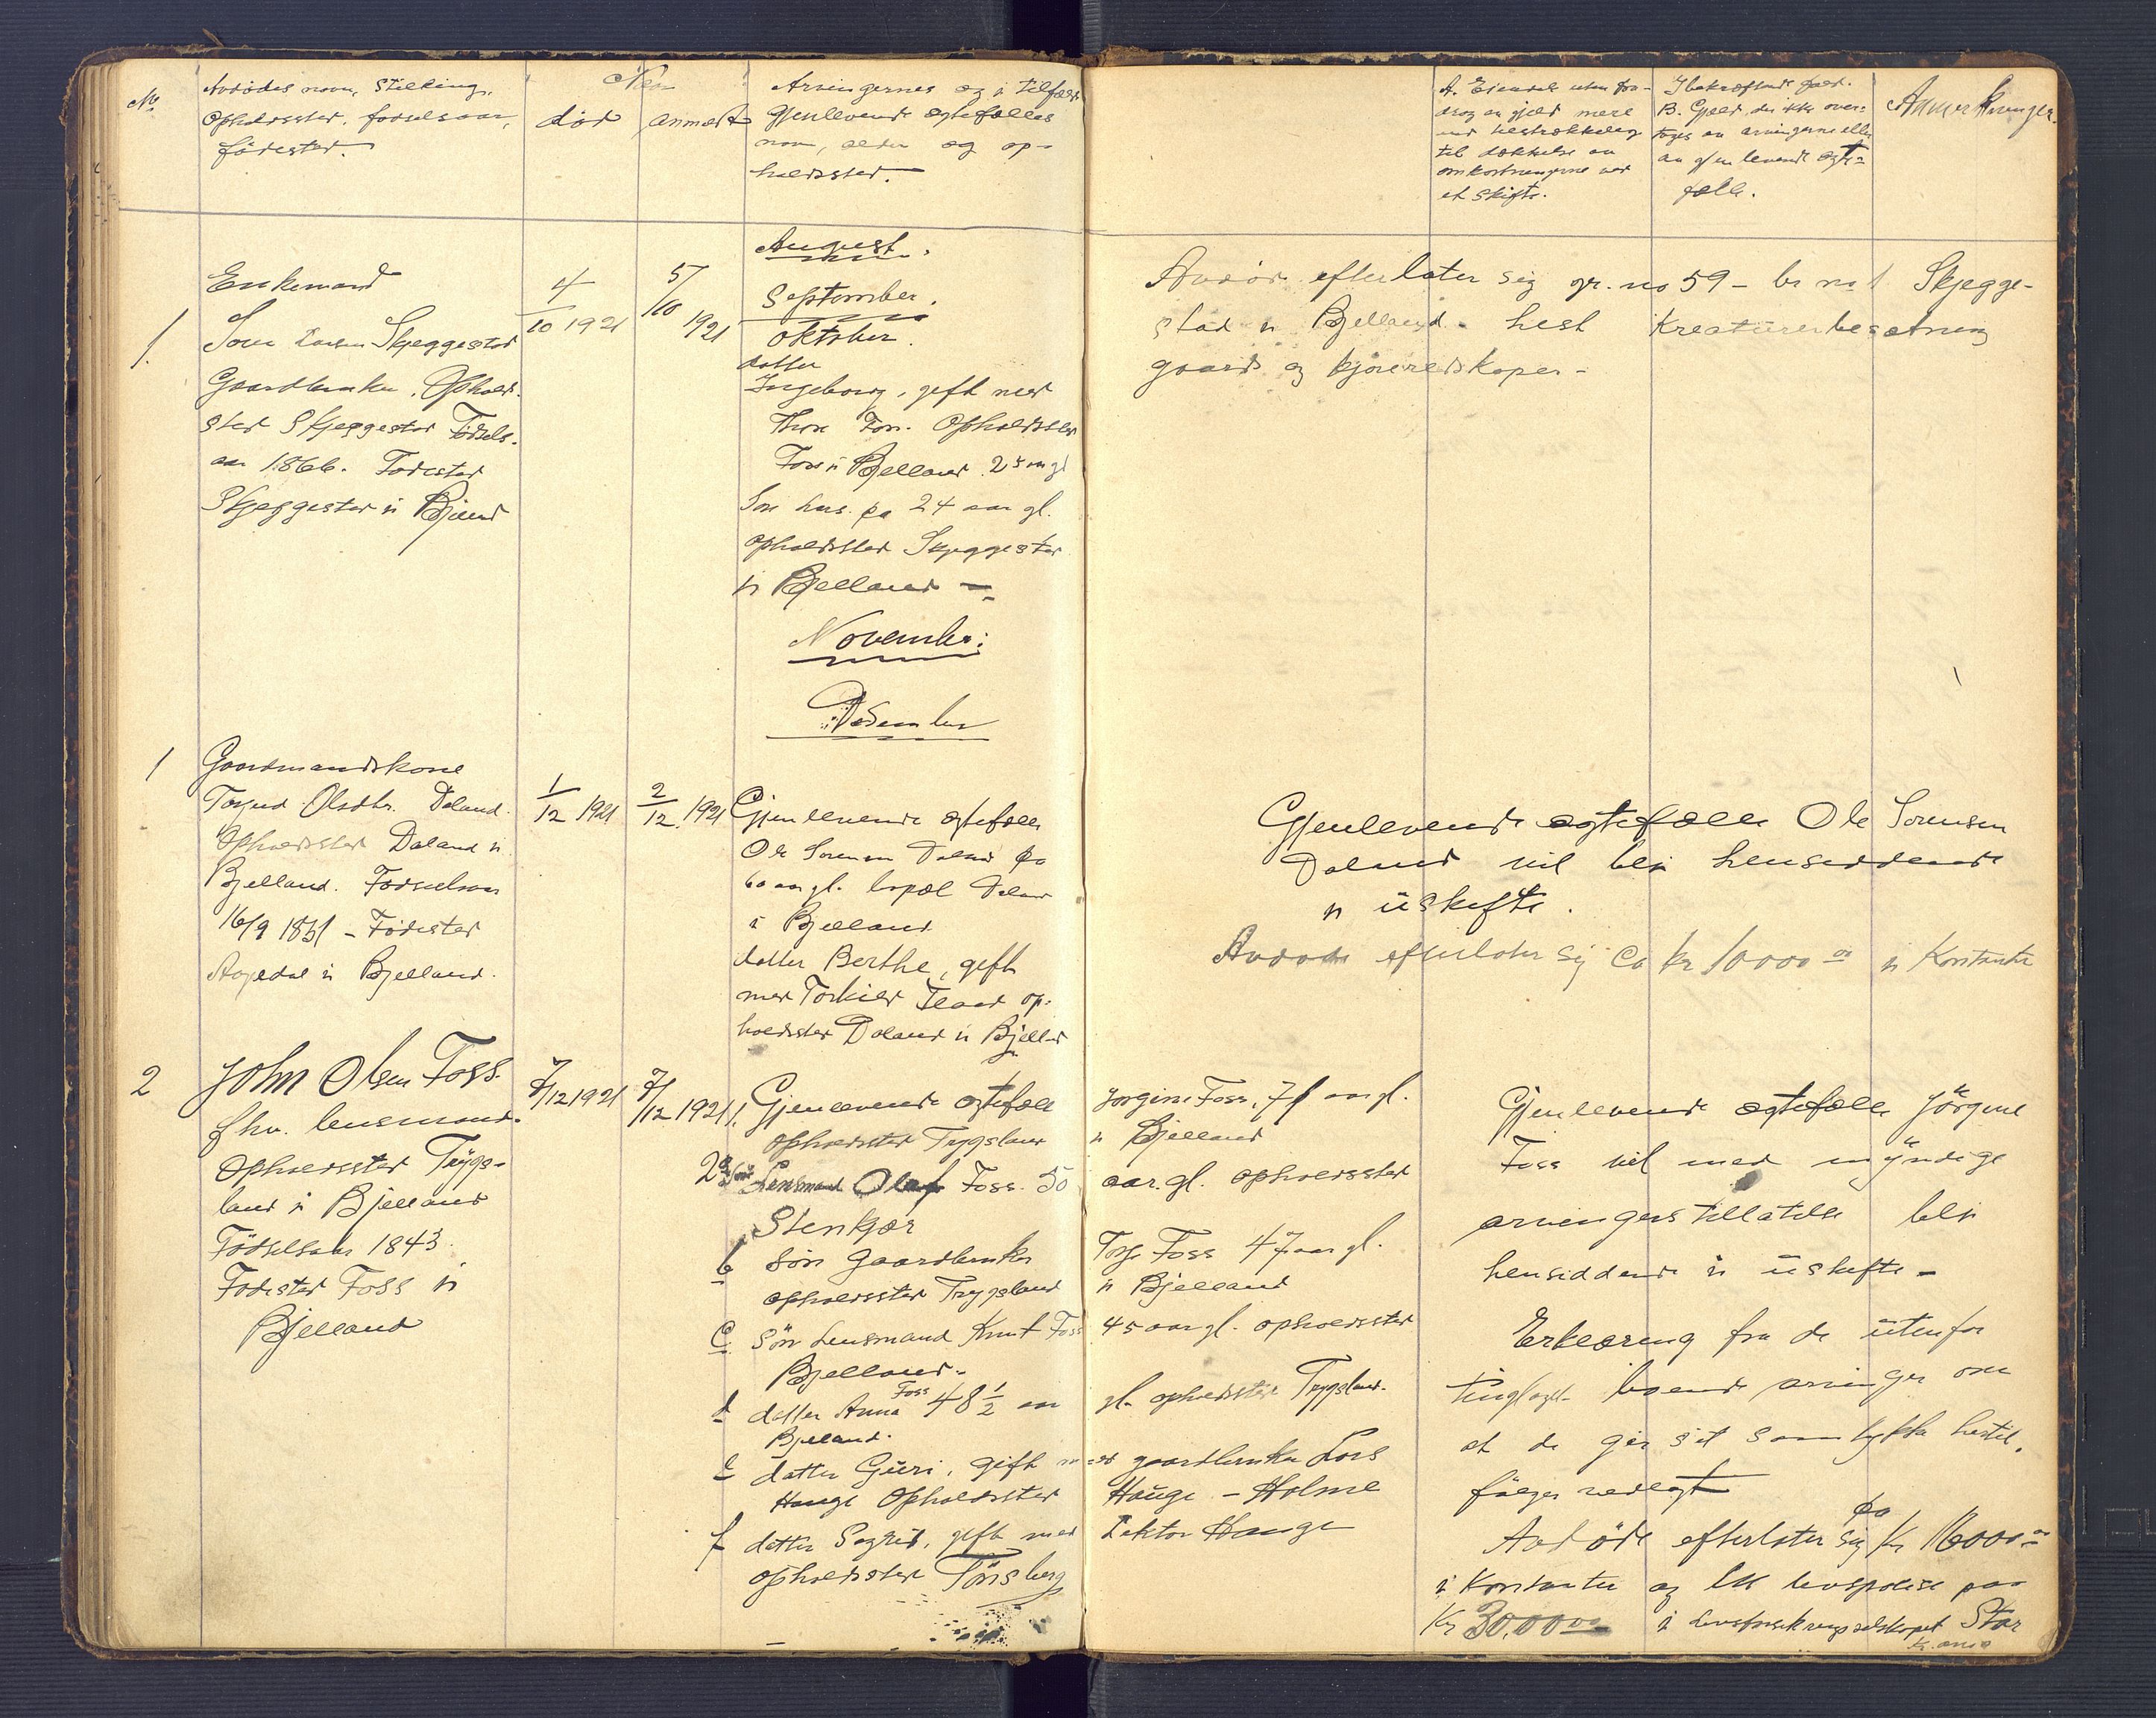 No.
Avdødes navn, stilling,
opholdssted, fødselsaar,
fødested.
Naar
død
anmeldt
Arvingernes og i tilfælde
gjenlevende egtefælles
navn, alder og op-
holdssted.
A. Eiendele uten fra-
drag av gjeld mere
end tilstrækkelig
til dækkelse av
omkostningerne ved
et skifte.
I bekræftende fald.
B. Gjeld, der ikke over-
tages av arvingerne eller
av gjenlevende egte-
fælle.
Anmerkninger.
August.
September.
Oktober.
1.
Enkemand
Skjeggestad
Gaardbruker. Ophold-
sted Skjeggestad Fødsels-
aar 1866. Fødested
Skjeggestad i
4/10 1921
5/10 1921
datter
Ingeborg, gift med
Opholdssted
Foss i Bjelland.
24 aar gl.
opholdssted Skjeggestad
i Bjelland -
Avdøde efterlater sig gr. no 59 - br no 1 Skjegge-
stad i Bjelland. hest kreaturbesætning
gaards og kjøreredskaper -
November:
Desember
1
Gaardmandskone
Olsdtr. Daland.
Opholdssted Daland i
Bjelland. Fødselsaar
Fødested
i Bjelland.
1/12 1921
2/12 1921
Gjenlevende egtefælle
Ole Sørensen Daland pa
60 aar gl. bopæl Daland
i Bjelland
datter Berthe, gift
med Torkild op-
holdssted Daland i Bjelland
Gjenlevende egtefælle Ole Sørensen
Daland vil bli hensiddende
i uskifte.
Avdøde efterlater sig ca kr 10000 00 i Kontanter
2
John Olsen Foss
fhv. lensmand.
Opholdssted Trygs-
land i Bjelland
Fødselsaar 1843.
Fødested Foss i
Bjelland
7/12 1921
7/12 1921
1. Gjenlevende egtefælle Jørgine Foss, 71 aar gl.
opholdssted Trygsland i Bjelland
2 a Søn Lensmand Olaf Foss. 50 aar. gl. opholdssted
Stenkjær
b Søn Gaardbruker Foss 47 aar gl.
opholdssted Trygsland i Bjelland
c. Søn Lensmand Knut Foss 45 aar gl. opholdssted
Bjelland.
d datter Anna Foss 48 1/2 aar gl. opholdssted Trygsland.
Bjelland.
e datter Guri, gift med gaardbruker Lars
Hauge Opholdssted Hauge - Holme
f datter Sigrid, gift med Lektor Hauge
opholdssted Tønsberg
Gjenlevende egtefælle Jørgine
Foss vil med myndige
arvingers tillatelse bli
hensiddende i uskifte -
Erklæring fra de utenfor
tinglaget boende arvinger om
at de gir sit samtykke hertil,
følger vedlagt
Avdøde efterlater sig pa kr 16000 00
i Kontanter og en livspolise paa
Kr 30.000 00 i Livsforsikringsselskapet Star